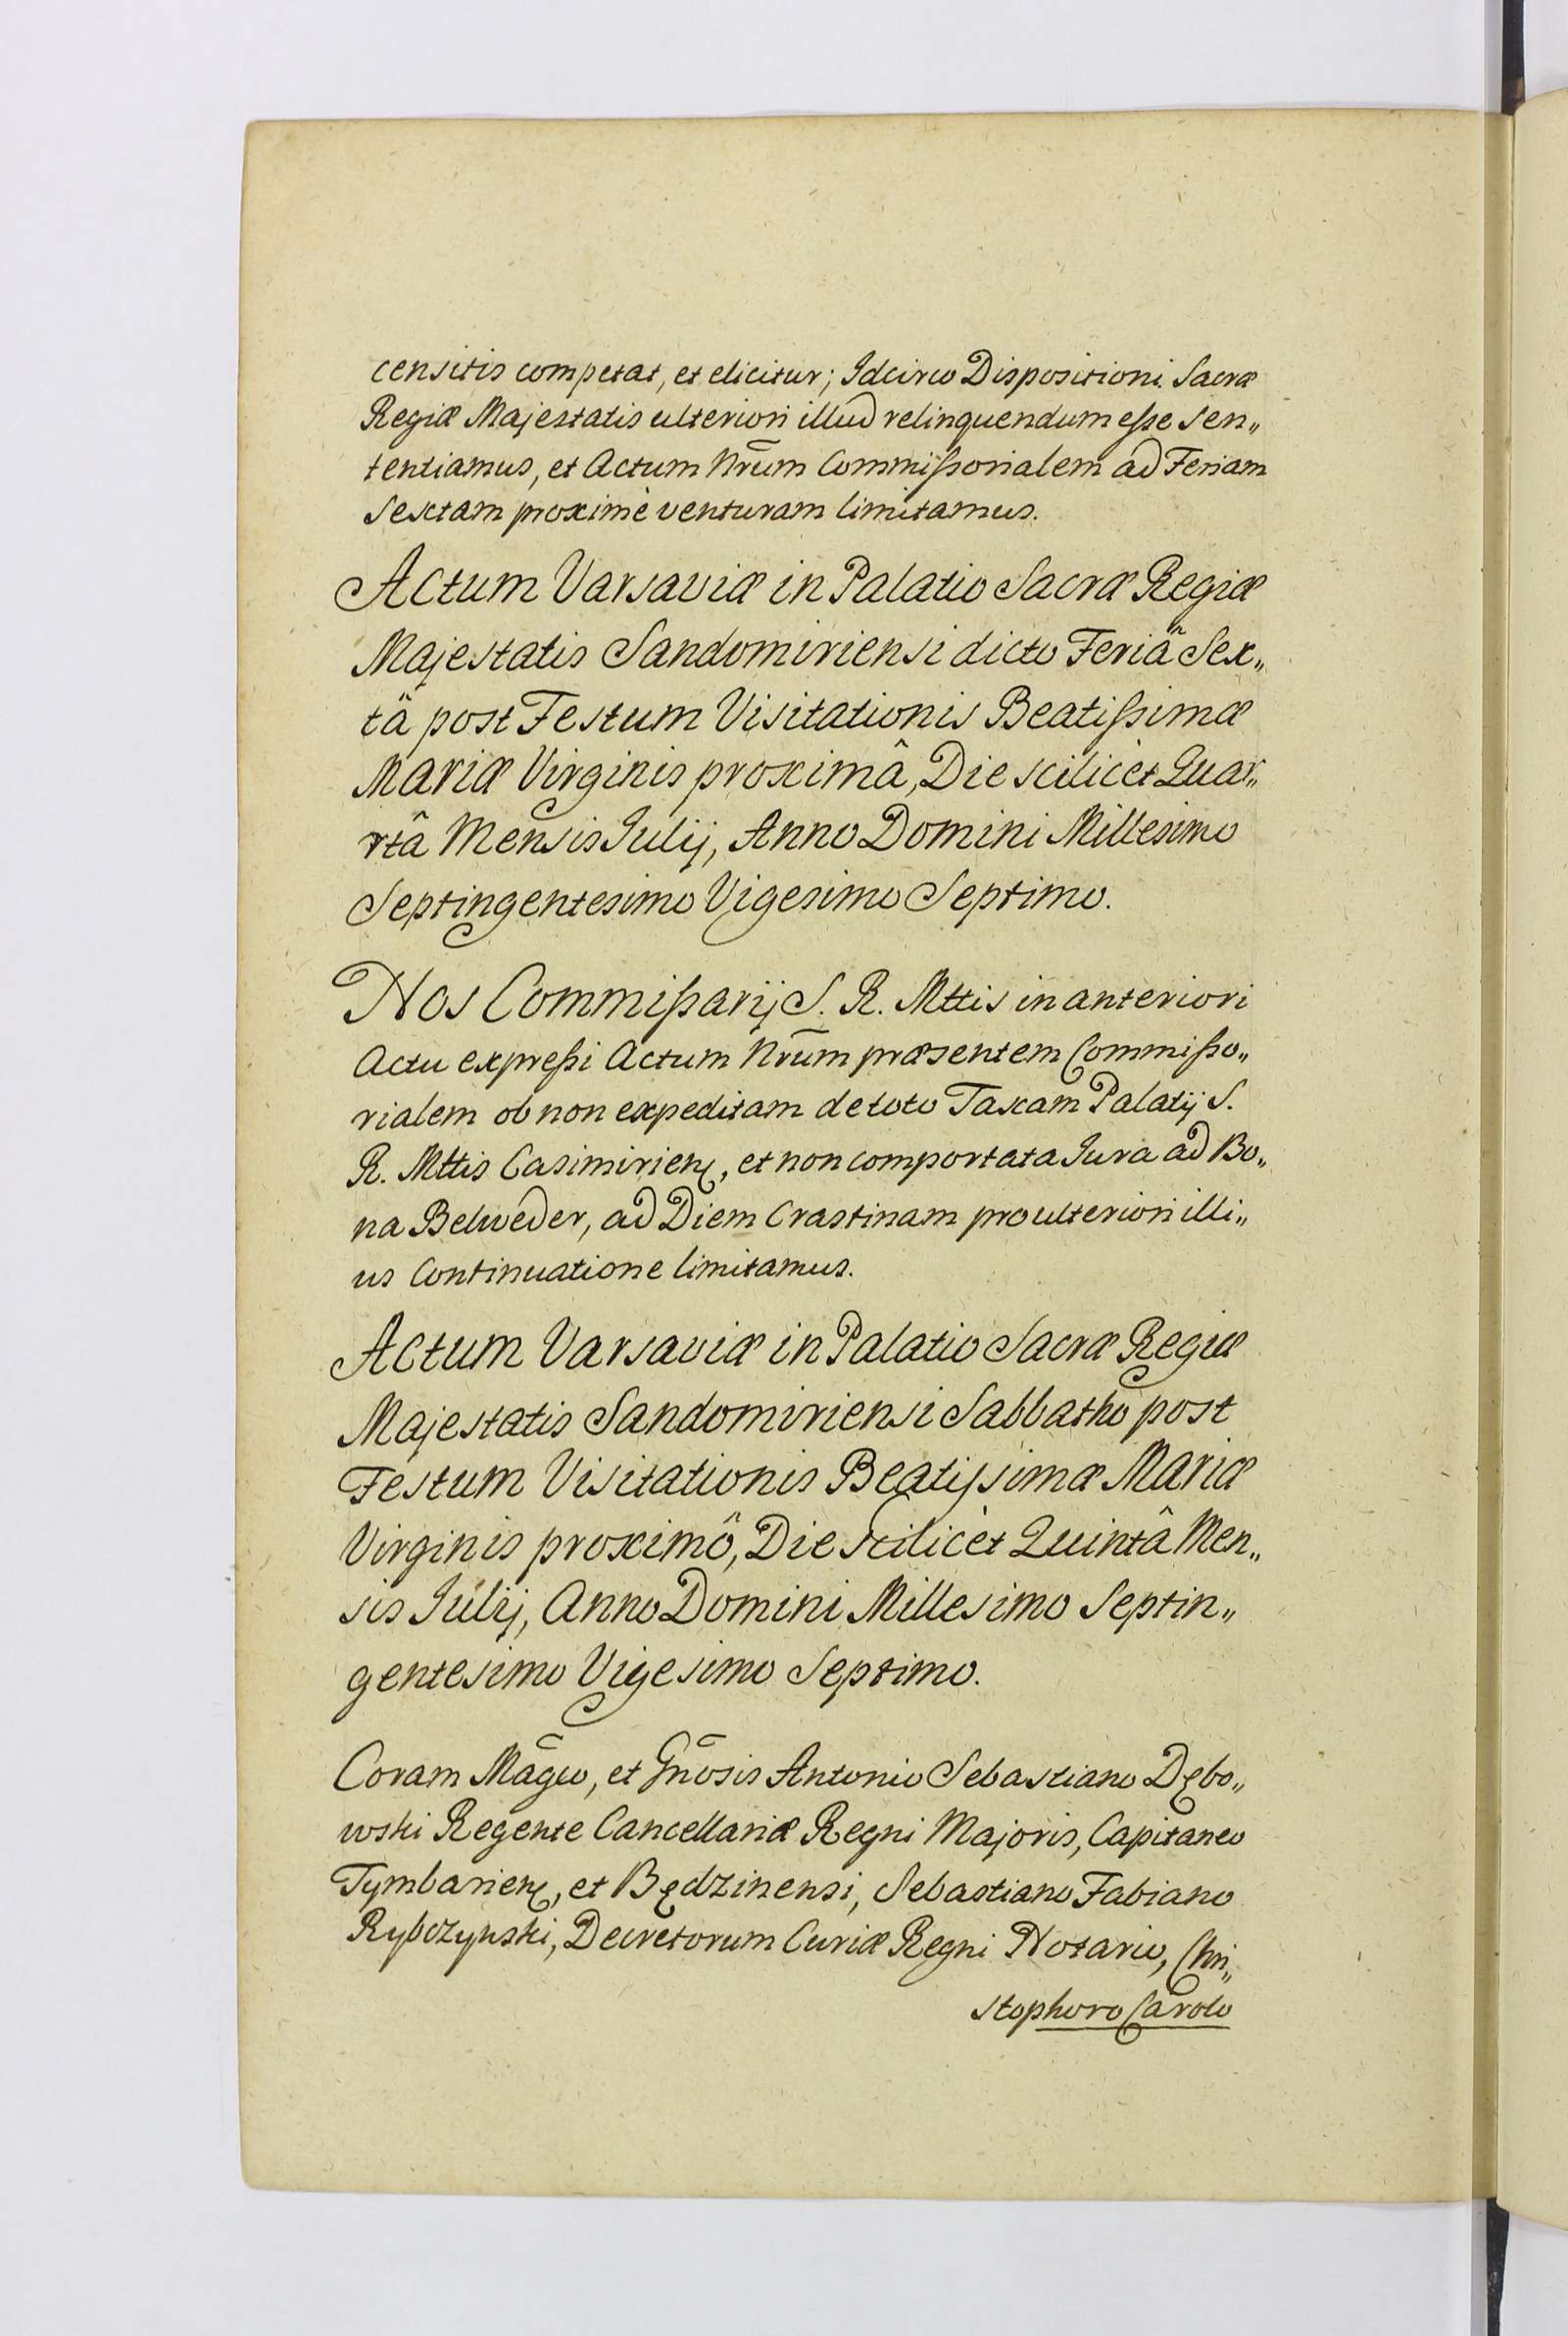 censitis competat, et elicitur; Idcirco Dispositioni Sacræ
Regiæ Majestatis ulteriori illud relinquendum eſse Sen„
tentiamus, et Actum Nrūm Commiſsorialem ad Feriam
Sextam proximè venturam limitamus.
Actum Varsaviæ in Palatio Sacræ Regiæ
Majestatis Sandomiriensi dicto Feriâ Sex„
tâ post Festum Visitationis Beatiſsimæ
Mariæ Virginis proximâ, Die scilicèt Quar„
rtâ Mensis Julij, Anno Domini Millesimo
Septingentesimo Vigesimo Septimo.
Nos Commiſsarij S. R. Mttis in anteriori
Actu expreſsi Actum Nrūm præsentem Commiſso„
rialem ob non expeditam de toto Taxam Palatij S.
R. Mttis Casimirieñ, et non comportata Jura ad Bo„
na Belweder, ad Diem Crastinam pro ulteriori illi„
us Continuatione limitamus.
Actum Varsaviæ in Palatio Sacræ Regiæ
Majestatis Sandomiriensi Sabbatho post
Festum Visitationis Beatiſsimæ Mariæ
Virginis proximô, Die scilicèt Quintâ Men„
sis Julij, Anno Domini Millesimo Septin„
gentesimo Vigesimo Septimo.
Coram Māgco, et Gnōsis Antonio Sebastiano Dębo„
wski Regente Cancellariæ Regni Majoris, Capitaneo
Tymbarieñ, et Będzinensi, Sebastiano Fabiano
Rybczynski, Decretorum Curiæ Regni Notario, Chri„
stophoro Carolo